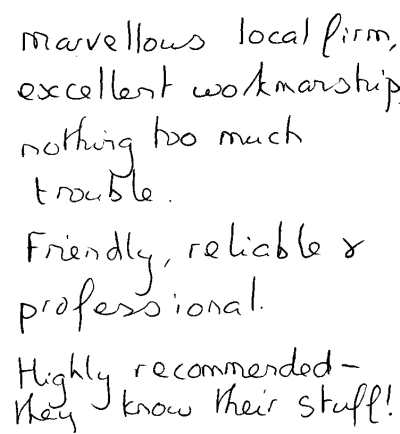 marvellous local firm,
excellent workmanship,
nothing too much
trouble.
Friendly, reliable &
professional.
Highly recommended –
they know their stuff!